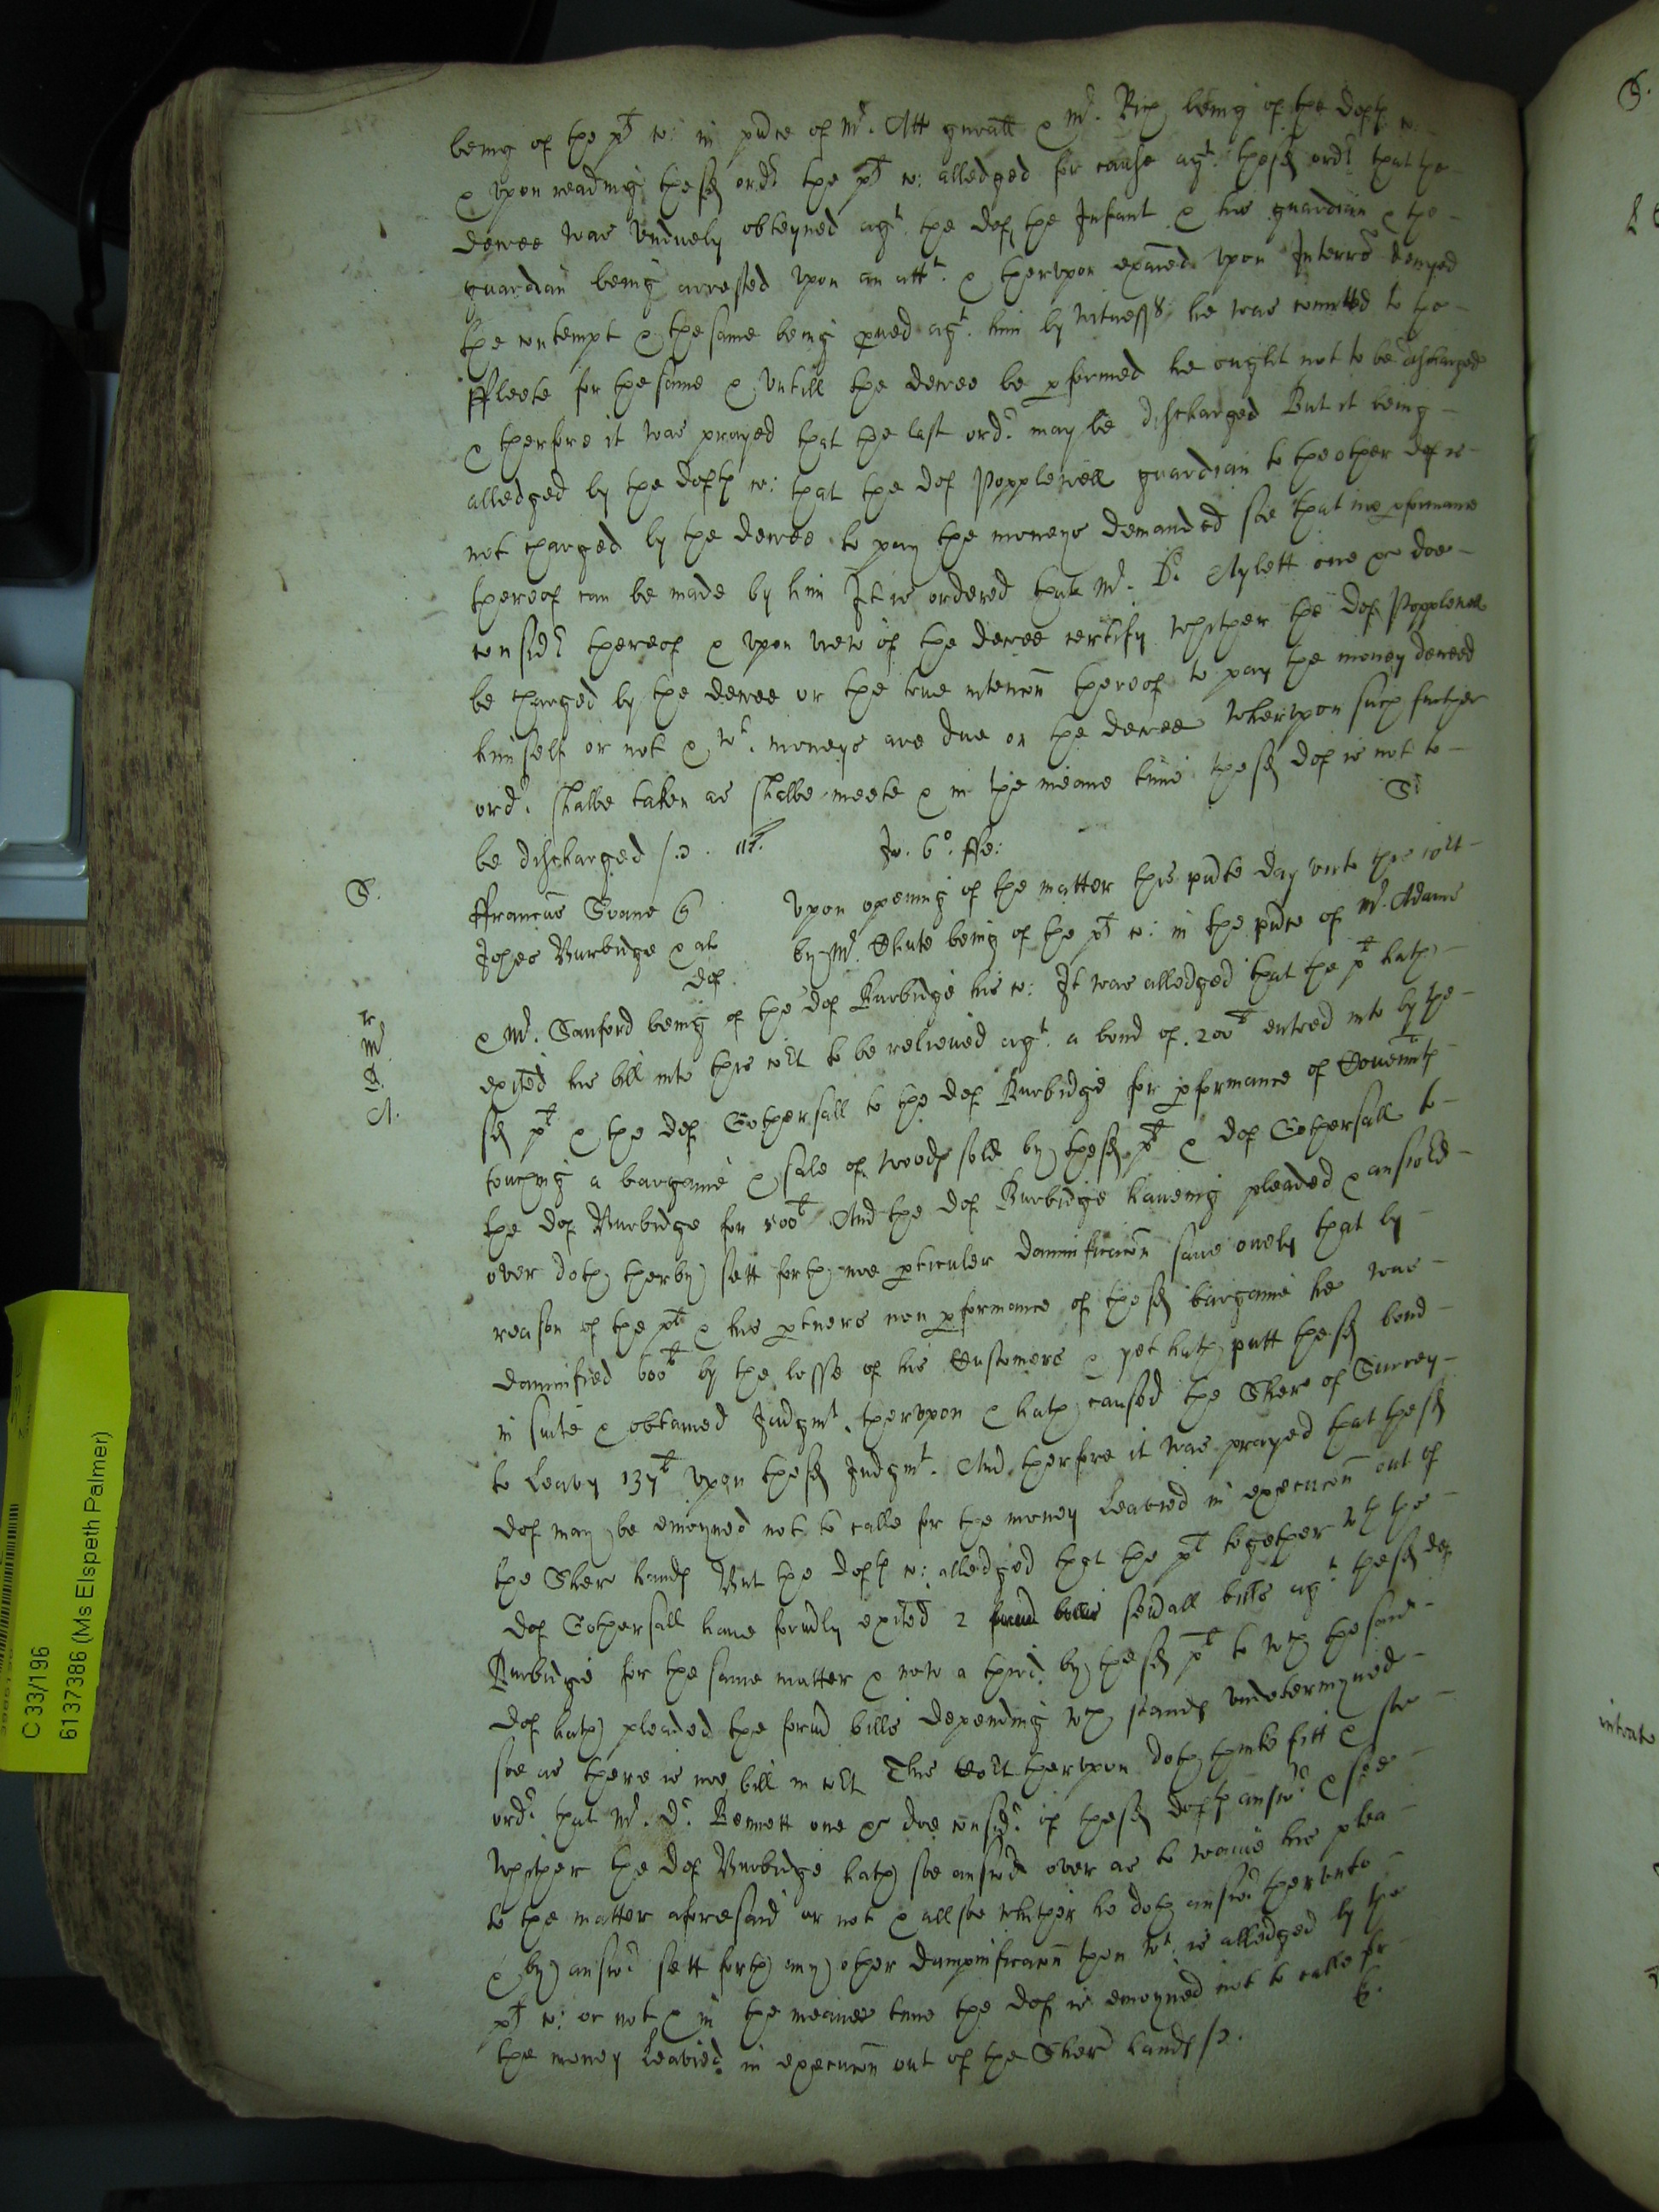 being of the plt c: in pñce of Mr. Att gñrall & Mr. Rich being of the defts c:
& vpon reading the sd ordr the plt c: alledged for cause agt. the sd ordr that the
decree was vnduely obteyned agt. the def the Infant & his guardian & the
guardian being arrested vpon an att. & therevpon exãed vpon Interrs denyed
the contempt & the same being proued agt. him by witnesses he was comitted to the
ffleete for the same & vntill the decree be pformed he ought not to be discharged
& therfore it was prayed that the last ordr may be discharged But it being
alledged by the defts c: that the def Popplewell guardian to the other def is
not charged by the decree to pay the moneys demanded soe that noe pformance
thereof can be made by him It is ordered that Mr. Dr. Aylett one &c doe
considr thereof & vpon view of the decree certify whether the def Popplewell
be charged by the decree or the true intencõn thereof to pay the money decreed
himself or not & wt. moneys are due on the decree whervpon such further
ordr shalbe taken as shalbe meete & in the meane time the sd def is not to
be discharged
Jo. 6o. ffe:
S.
ffrancus Evane
Johes Burbidge & al
def
Vpon opening of the matter this pñte day vnto this cort
by Mr. Chute being of the plt c: in the pñce of Mr. Adams
& Mr. Sanford being of the def Burbidge his c: It was alledged that the plt hath
exited his bill into this cort to be releiued agt. a bond of 200l entred into by the
sd plt & the def Gothersall to the def Burbidge for pformance of Couenants
touching a bargaine & sale of woods sold by the sd plt & def Gothersall to
the def Burbidge for 500l And the def Burbidge haueing pleaded & answered
over doth therby sett forth noe pticuler damnificacõn saue onely that by
reason of the plt & his ptners non pformance of the sd bargaine he was
damnified 600l by the losse of his Customers & yet hath putt the sd bond
in suite & obtained Judgmt. thervpon & hath caused the Sher of Surrey
to leavy 137l vpon the sd Judgmt. And therfore it was prayed that the sd
def may be enioyned not to calle for the money leavied in execucõn out of
the Sher hands But the defts c: alledged that the plt together wth the
def Gothersall haue formrly exited 2 seuãll bills agt the sd def
Burbidge for the same matter & now a third by the sd plt to wch the said
def hath pleaded the former bills depending wch stands vndetermyned
soe as there is noe bill in cort This Cort thervpon doth thinke fitt & soe
ordr that Mr. Dr. Bennett one &c doe considr of the sd defts answr & see
whether the def Burbidge hath soe answrd over as to waiue his plea
to the matter aforesaid or not & allsoe whether he doth answr thervnto
& by answr sett forth any other dampnificacõn then wt. is alledged by the
plt c: or not & in the meane time the def is enioyned not to calle for
the money leavied in execucõn out of the Sher hands
r
Mr
D.
A.
C 33/196
6137386 (Ms Elspeth Palmer)